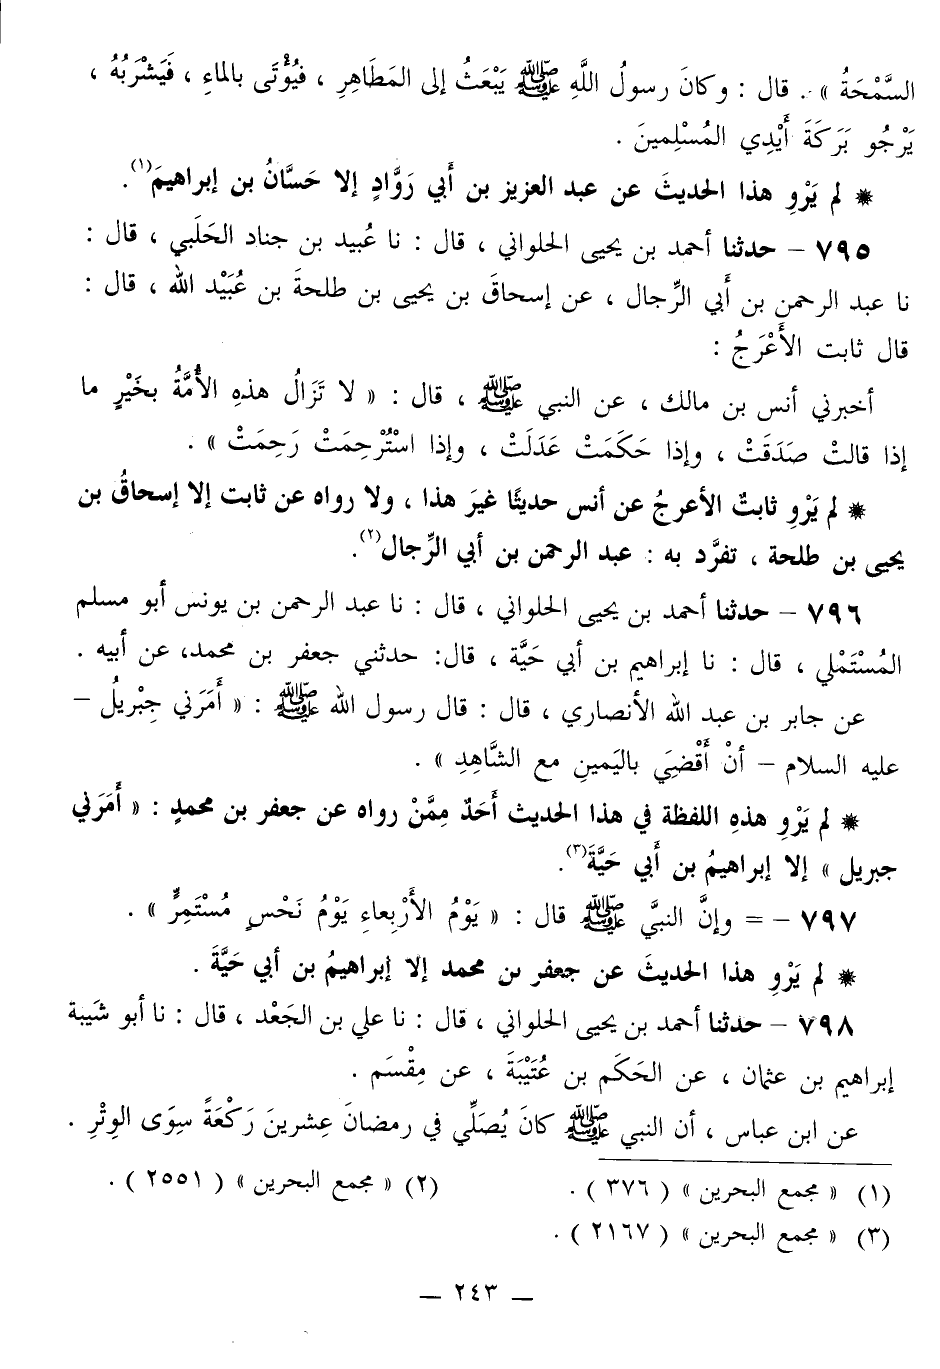 السَّمْحَةُ » . قال : وكانَ رسولُ اللَّهِ ﷺ يَبْعَثُ إلى المَطَاهِرِ ، فيُؤْتَى بالماءِ ، فَيَشْرَبُهُ ،
يَرْجُو بَرَكَةَ أَيْدِي المُسْلِمينَ .
* لم يَرْوِ هذا الحديثَ عن عبد العزيز بن أبي رَوَّادٍ إلا حَسَّانُ بن إبراهيمَ(١).
٧٩٥ – حدثنا أحمد بن يحيى الحلواني ، قال : نا عُبيد بن جناد الحَلَبي ، قال :
نا عبد الرحمن بن أَبي الرِّجال ، عن إسحاقَ بن يحيى بن طلحةَ بن عُبَيْد الله ، قال :
قال ثابت الأَعْرَجُ :
أخبرني أنس بن مالك ، عن النبي ﷺ ، قال : « لا تَزَالُ هذهِ الأُمَّةُ بخَيْرٍ ما
إذا قالتْ صَدَقَتْ ، وإذا حَكَمَتْ عَدَلَتْ ، وإذا اسْتُرْحِمَتْ رَحِمَتْ » .
* لم يَرْوِ ثابتٌ الأعرجُ عن أنس حديثًا غيرَ هذا ، ولا رواه عن ثابت إلا إسحاقُ بن
يحيى بن طلحة ، تفرَّد به : عبد الرحمن بن أبي الرِّجال(٢).
٧٩٦ – حدثنا أحمد بن يحيى الحلواني ، قال : نا عبد الرحمن بن يونس أبو مسلم
المُسْتَمْلي ، قال : نا إبراهيم بن أبي حَيَّة ، قال: حدثني جعفر بن محمد، عن أبيه .
عن جابر بن عبد الله الأنصاري ، قال : قال رسول الله ﷺ : « أَمَرَني جِبْريلُ –
عليه السلام – أنْ أَقْضِيَ باليَمينِ مع الشَّاهِدِ » .
* لم يَرْوِ هذهِ اللفظة في هذا الحديث أَحَدٌ مِمَّنْ رواه عن جعفر بن محمدٍ : « أَمَرَني
جبريل » إلا إبراهيمُ بن أَبي حَيَّةَ(٣).
٧٩٧ – = وإنَّ النبيَّ ﷺ قال : « يَوْمُ الأَرْبعاءِ يَوْمُ نَحْسٍ مُسْتَمِرٍّ » .
* لم يَرْوِ هذا الحديثَ عن جعفر بن محمد إلا إبراهيمُ بن أبي حَيَّةَ .
٧٩٨ – حدثنا أحمد بن يحيى الحلواني ، قال : نا علي بن الجَعْد ، قال : نا أبو شَيبة
إبراهيم بن عثمان ، عن الحَكَم بن عُتَيْبَةَ ، عن مِقْسَم .
عن ابن عباس ، أن النبي ﷺ كانَ يُصَلِّي في رمضانَ عِشرينَ رَكْعَةً سِوَى الوِتْرِ .
(١) « مجمع البحرين » ( ٣٧٦ ) . (٢) « مجمع البحرين » ( ٢٥٥١ ) .
(٣) « مجمع البحرين » ( ٢١٦٧ ) .
– ٢٤٣ –